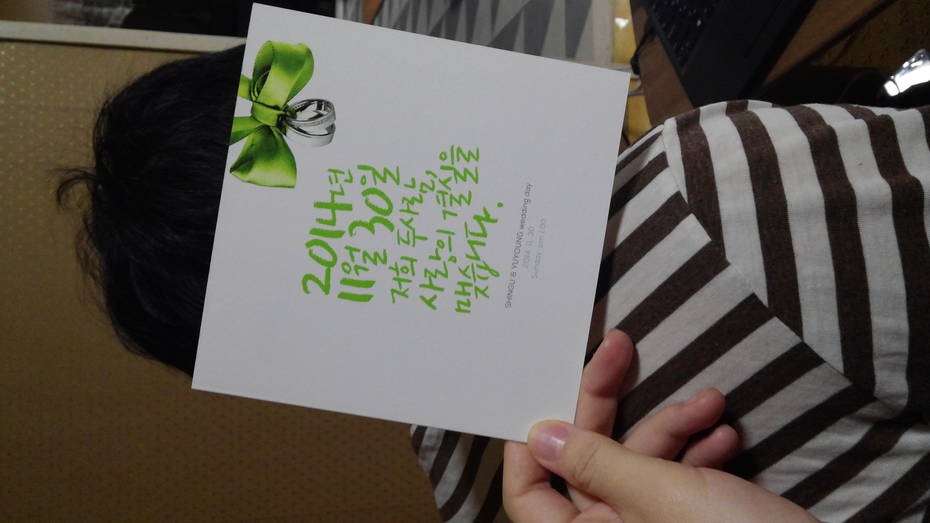 2014년
11월 30일
저희 두사람,
사랑의 결실을
맺습니다.
SHINGU & YUYOUNG wedding day
2014. 11. 30
Sunday pm 1:00